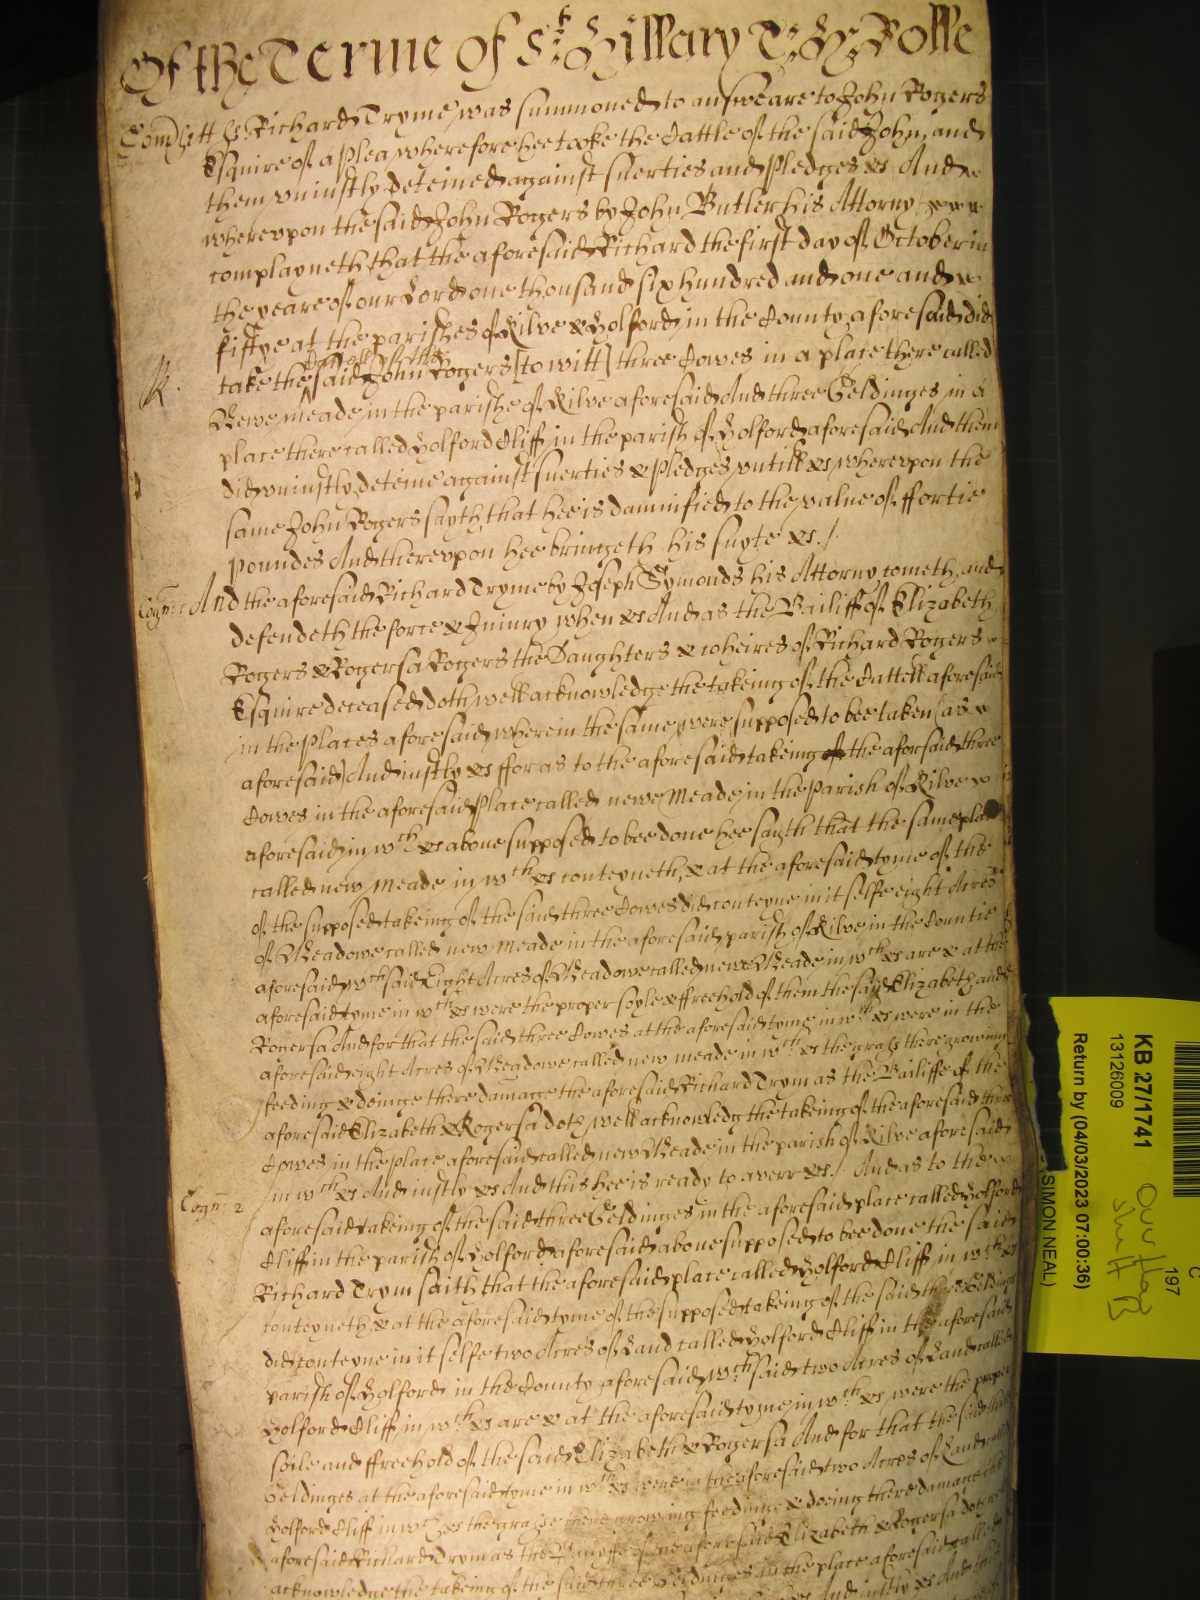 Of the Terme of St: Hillary
Richard Tryme was summoned to answeare to John Rogers
Esquire of a plea wherefore hee tooke the Cattle of the said John, and
them uniustly deteined against suerties and Pledges &c And
whereupon the said John Rogers by John Butler his Attorny
complayneth that the aforesaid Richard the first day of October in
the yeare of our Lord one thousand six hundred and one and
fiftye at the parishes of Kilve & Holford in the County aforesaid did
take the said John Rogers [to witt] three Cowes in a place there called
Newe meade in the parishe of Kilve aforesaid And three Geldinges in a
place there called Holford Cliff in the parish of Holford aforesaid And them
did uniustly deteine against suerties & Pledges untill &c whereupon the
same John Rogers sayth that hee is damnified to the value of ffortie
poundes And thereupon hee bringeth his suyte &c./
Cogn: And the aforesaid Richard Tryme by Joseph Symonds his Attorny cometh, and
defendeth the force & Iniury when &c And as the Bailiff of Elizabeth
Rogers & Rogersa Rogers the Daughters & coheires of Richard Rogers
Esquire deceased doth well acknowledge the takeing of the Cattell aforesaid
in the Places aforesaid wherein the same were supposed to bee taken [as
aforesaid] And iustly &c ffor as to the aforesaid takeing the aforsaid three
Cowes in the aforesaid Place called newe Meade in the Parish of Kilve
aforesaid in wch &c above supposed to bee done hee sayth that the same place
called new meade in wch &c conteyneth, & at the aforesaid tyme of the
of the supposed takeing of the said three Cowes did conteyne in it selfe eight Acres
of Meadowe called new meade in the aforesaid parish of Kilve in the Countie
aforesaid wch said Eight Acres of Meadowe called newe Meade in wch &c are & at the
aforesaid tyme in wch &c were the proper soyle & ffreehold of them the said Elizabeth and
Rogersa And for that the said three Cowes at the aforesaid tyme in wch &c were in the
aforesaid eight Acres of Meadowe called new meade in wch &c the grasse there growing
feeding & doinge there damage the aforesaid Richard Trym as the Bailiffe of the
aforesaid Elizabeth & Rogersa doth well acknowledg the takeing of the aforesaid three
Cowes in the place aforesaid called new Meade in the parish of Kilve aforesaid
in wch &c And iustly &c And this hee is ready to averr &c./ And as to the
Cogn: 2 aforesaid takeing of the said three Geldinges in the aforesaid place called Holford
Cliff in the parish of Holford aforesaid above supposed to bee done the said
Richard Trym saith that the aforesaid place called Holford Cliff in wch &c
conteyneth & at the aforesaid tyme of the supposed takeing of the said three Geldings
did conteyne in it selfe two Acres of Land called Holford Cliff in the aforesaid
parish of Holford in the County aforesaid wch said two Acres of Land called
Holford Cliff in wch &c are & at the aforesaid tyme in wch &c were the proper
soile and ffreehold of the said Elizabeth & Rogersa And for that the said three
Geldinges at the aforesaid tyme in wch &c were in the aforesaid two Acres of Land called
Holford Cliff in wch &c the grasse there growing feedinge & doeing there damage the
aforesaid Richard Trym as the Bailyffe of the aforesaid Elizabeth & Rogersa doth
acknowledge the takeing of the said three Geldinges in the place aforesaid called
&c And iustly &c And this
C
197
KB 27/1741
13126009
Return by (04/03/2023 07:00:36)
(SIMON NEAL)